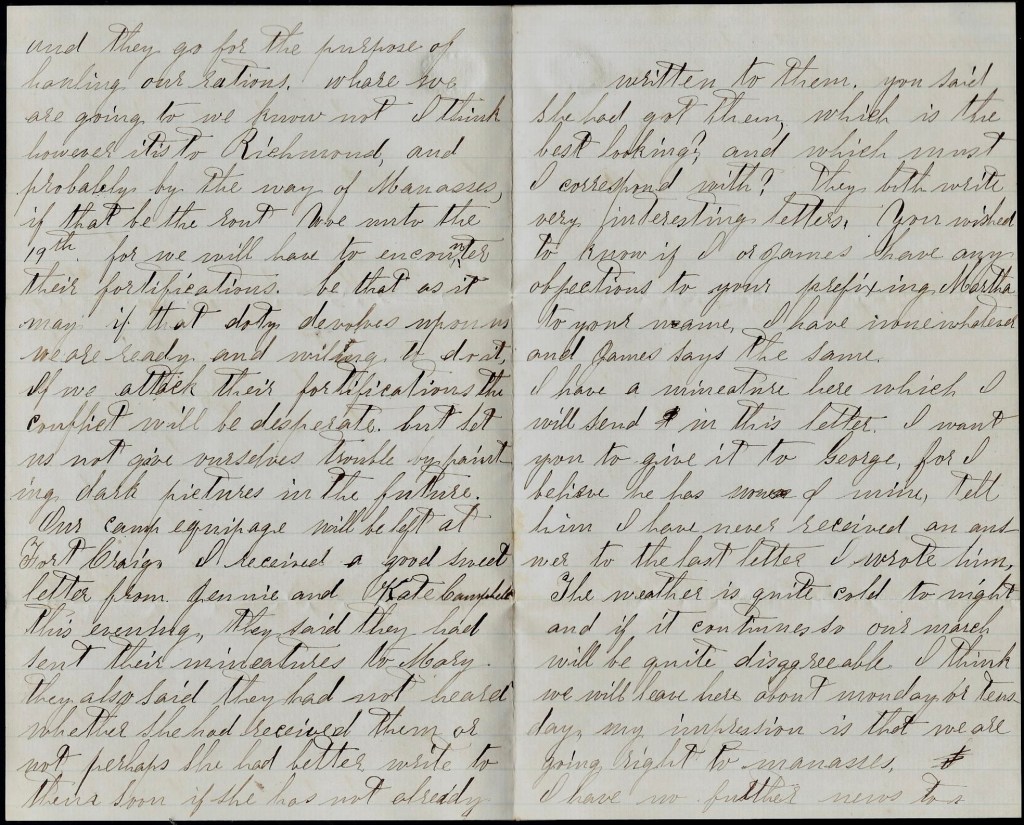 and they go for the purpose of
hauling our rations. whare we
are going to we know not I think
however it is to Richmond, and
probably by the way of Manasses,
if that be the rout Woe unto the
19th. for we will have to encounter
their fortifications. be that as it
may if that doty devolves upon us
we are ready and willing to do it,
If we attack their fortifications the
conflict will be desperate. but let
us not give ourselves trouble by paint
ing dark pictures in the future.
Our camp equipage will be left at
Fort Craig. I received a good sweet
letter from Jennie and Kate Campbell
this evening, they said they had
sent their mineatures to Mary.
they also said they had not heard
whether she had received them or
not perhaps she had better write to
them soon if she has not already
written to them. you said
she had got them, which is the
best looking? and which must
I correspond with? They both write
very interesting letters. You wished
to know if I or James have any
objections to your prefixing Martha
to your name, I have none whatever
and James says the same.
I have a mineature here which I
will send in this letter. I want
you to give it to George, for I
believe he has none of mine, tell
him I have never received an ans
wer to the last letter I wrote him,
The weather is quite cold to night
and if it continues so our march
will be quite disagreeable I think
we will leave here about monday or tues
day, my impression is that we are
going right to manasses.
I have no further news to